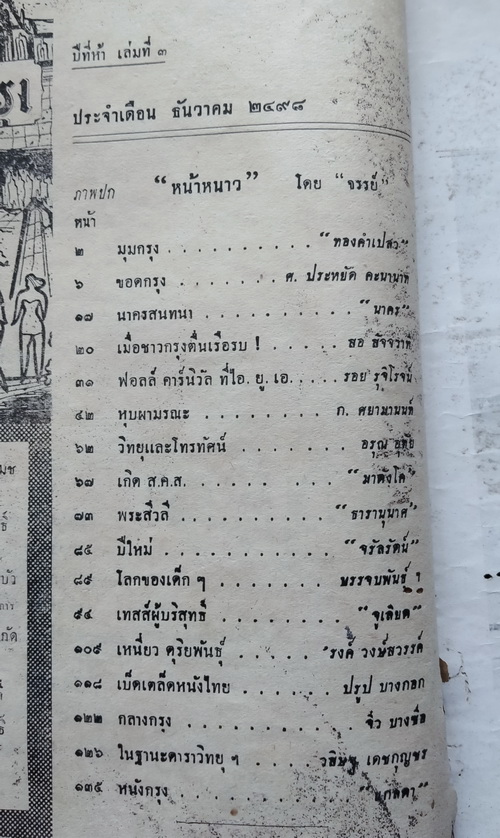 ปีที่ห้า เล่มที่ ๓
ประจำเดือน ธันวาคม ๒๔๙๘
ภาพปก “หน้าหนาว” โดย “จรรย์”
หน้า
๒ มุมกรุง . . . . . . . . . . “ทองคำเปลว”
๖ ยอดกรุง . . . . . . . ศ. ประหยัด
๑๗ นาครสนทนา . . . . . . . . . “นาคร”
๒๐ เมื่อชาวกรุงตื่นเรือรบ ! . . . . .
๓๑ ฟอลล์ คาร์นิวัล ที่ไอ. ยู. เอ. . . . . รอย รุจิโรจน์
๔๒ หุบผามรณะ . . . . . . . . ก. ศยามานนท์
๖๒ วิทยุและโทรทัศน์ . . . . . . อรุณ
๖๗ เกิด ส.ค.ส. . . . . . . “มาตังโค”
๗๓ พระสีวลี . . . . . . . . . “ธารานุนาศ”
๘๕ ปีใหม่ . . . . . . . . . “จรัลรัตน์”
๘๙ โลกของเด็ก ๆ . . . . . . . บรรจบพันธุ์ ฯ
๙๔ เทสส์ผู้บริสุทธิ์ . . . . . . . . “จูเลียต”
๑๐๙ เหนี่ยว ดุริยพันธุ์ . . . . . ’รงค์ วงษ์สวรรค์
๑๑๘ เบ็ดเตล็ดหนังไทย . . . . . . ปรูป บางกอก
๑๒๒ กลางกรุง . . . . . . . . . จิ๋ว บางซื่อ
๑๒๖ ในฐานะดาราวิทยุ ฯ . . . . วสิษฐ เดชกุญชร
๑๓๕ หนังกรุง . . . . . . . . . “แก้ลดา”